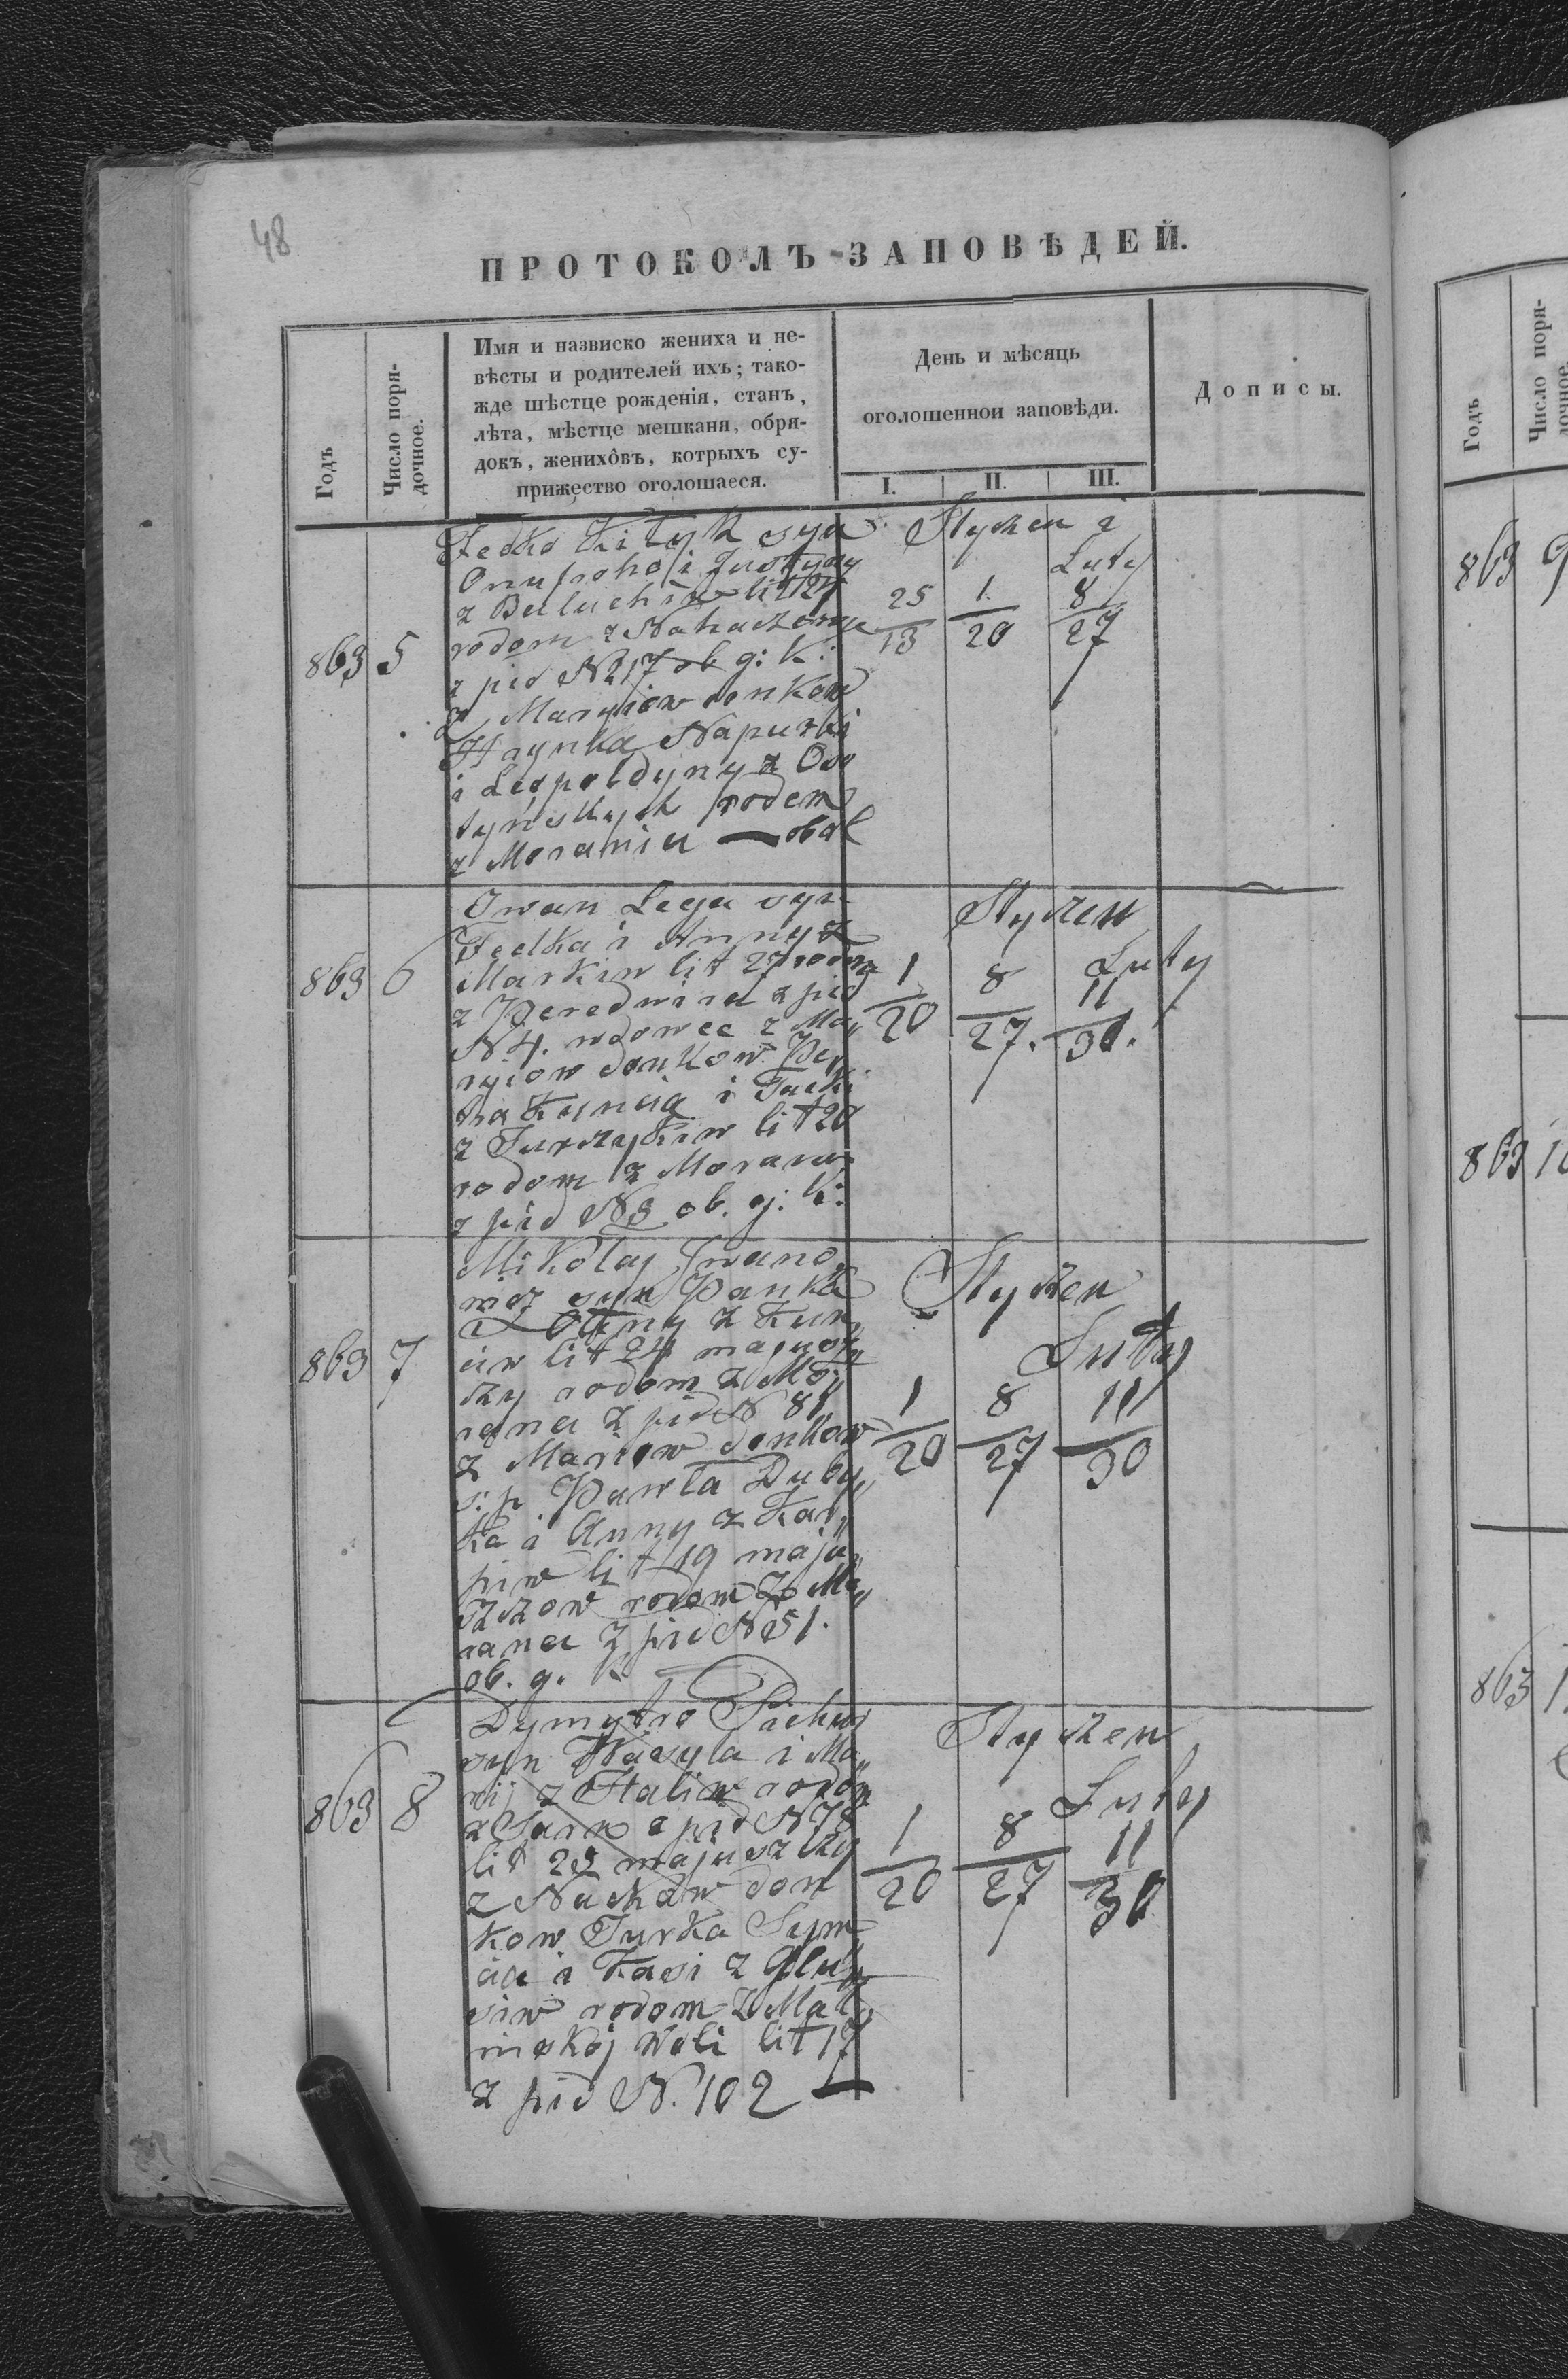 48
ПРОТОКОЛЪ ЗАПОВѢДЕЙ.
Годъ
Число поря-
дочное.
Имя и назвиско жениха и не-
вѣсты и родителей ихъ; тако-
жде мѣстце рожденія, станъ,
лѣта, мѣстце мешканя, обря-
докъ, женихôвъ, котрыхъ су-
прижество оголошаеся.
День и мѣсяць
оголошеннои заповѣди.
I. II. III.
Дописы.
863 5
Fedko Kityk syn
Onufroho i Justyny
z Beluchiw lit 24
rodom z Nahaczowa
z pid N 217 ob g: k:
z Maryiow donkow
Hrynka Napurki
i Leopoldyny z Oso
tyńskych rodem
z Morania — oba
Styczen i
Luty
25/13 1/20 8/27
863 6
Iwan Lega syn
Fedka i Anny z
Markiw lit 27 rodom
z Peredwira z pid
N 4. wdowec z Ma„
ryiow donkow
ha Kuncia i
z Jurczykiw lit 20
rodom z Moranec
z pid N 3 ob. g: k:
Styczen
Luty
1/20 8/27. 11/30.
863 7
Mikołaj Iwano
wicz syn Panka
i z Kun„
ciw lit 24 majuczy
rodom z Mo„
rana z pid N 81
z Mariow donkow
s: p Pawła Duby„
ka i Anny z Kar„
piw lit 19 maju„
rodom z Mo„
rana z pid N 51.
ob. g. k
Styczen
Luty
1/20 8/27 11/30
863 8
Dymytro
syn Wasyla i Ma„
rij z Haliw rodom
z pid N 78
lit 23
z donkow
Jurka Sym
i Kasi z
siw rodom z Mał„
inskoj Woli lit 17
z pid N. 102 —
Styczen
Luty
1/20 8/27 11/30
Годъ
Число поря-
дочное.
863 9
863 10
863